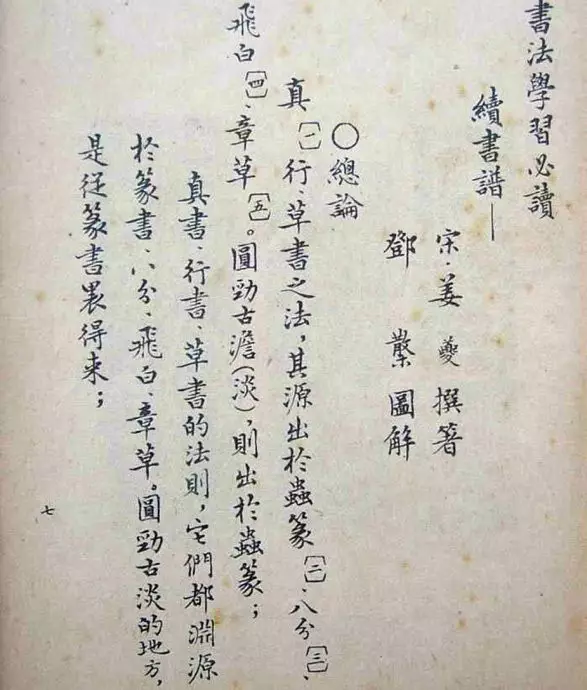 書法學習必讀
續書譜—
宋·姜夔撰著
鄧繫圖解
〇總論
真〔一〕、行、草書之法，其源出於蟲篆〔二〕、八分〔三〕、
飛白〔四〕、章草〔五〕。圓勁古澹(淡)，則出於蟲篆；
真書、行書、草書的法則，它們都淵源
於篆書、八分、飛白、章草。圓勁古淡的地方，
是從篆書裏得來；
七